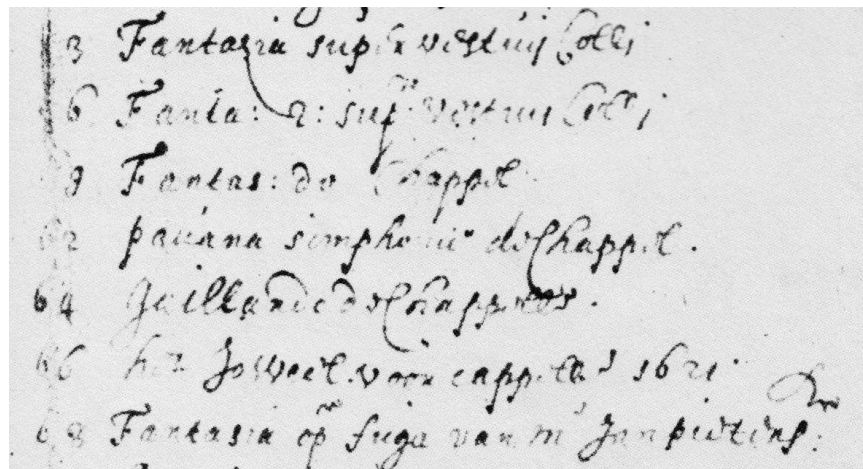 3 Fantasia super vestuij Colli
6 Fanta: 2: sup vestuij Colli
9 Fantas: de Chappel
62 pauana simphonie de Chappel.
64 Gaillande de Chappelles.
66 het Joweel. voor cappelle 1621.
68 Fantasia op fuga van mr Jan pieters: